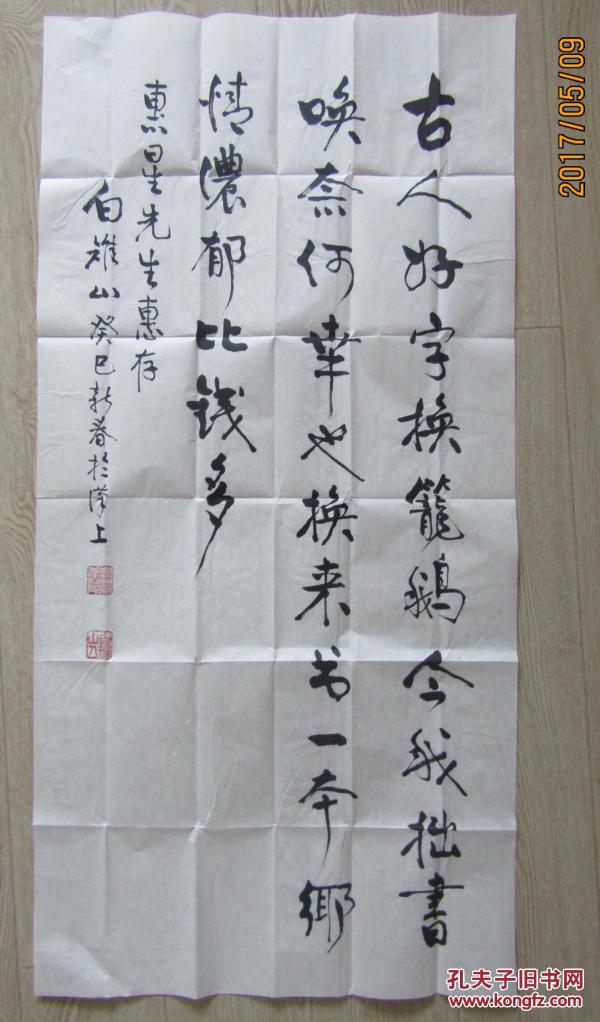 古人好字换籠鵝今我拙書
唤奈何幸也换来书一本鄉
情濃郁比銭多
惠星先生惠存
白雉山癸巳新春於漢上
2017/05/09
孔夫子旧书网
www.kongfz.com